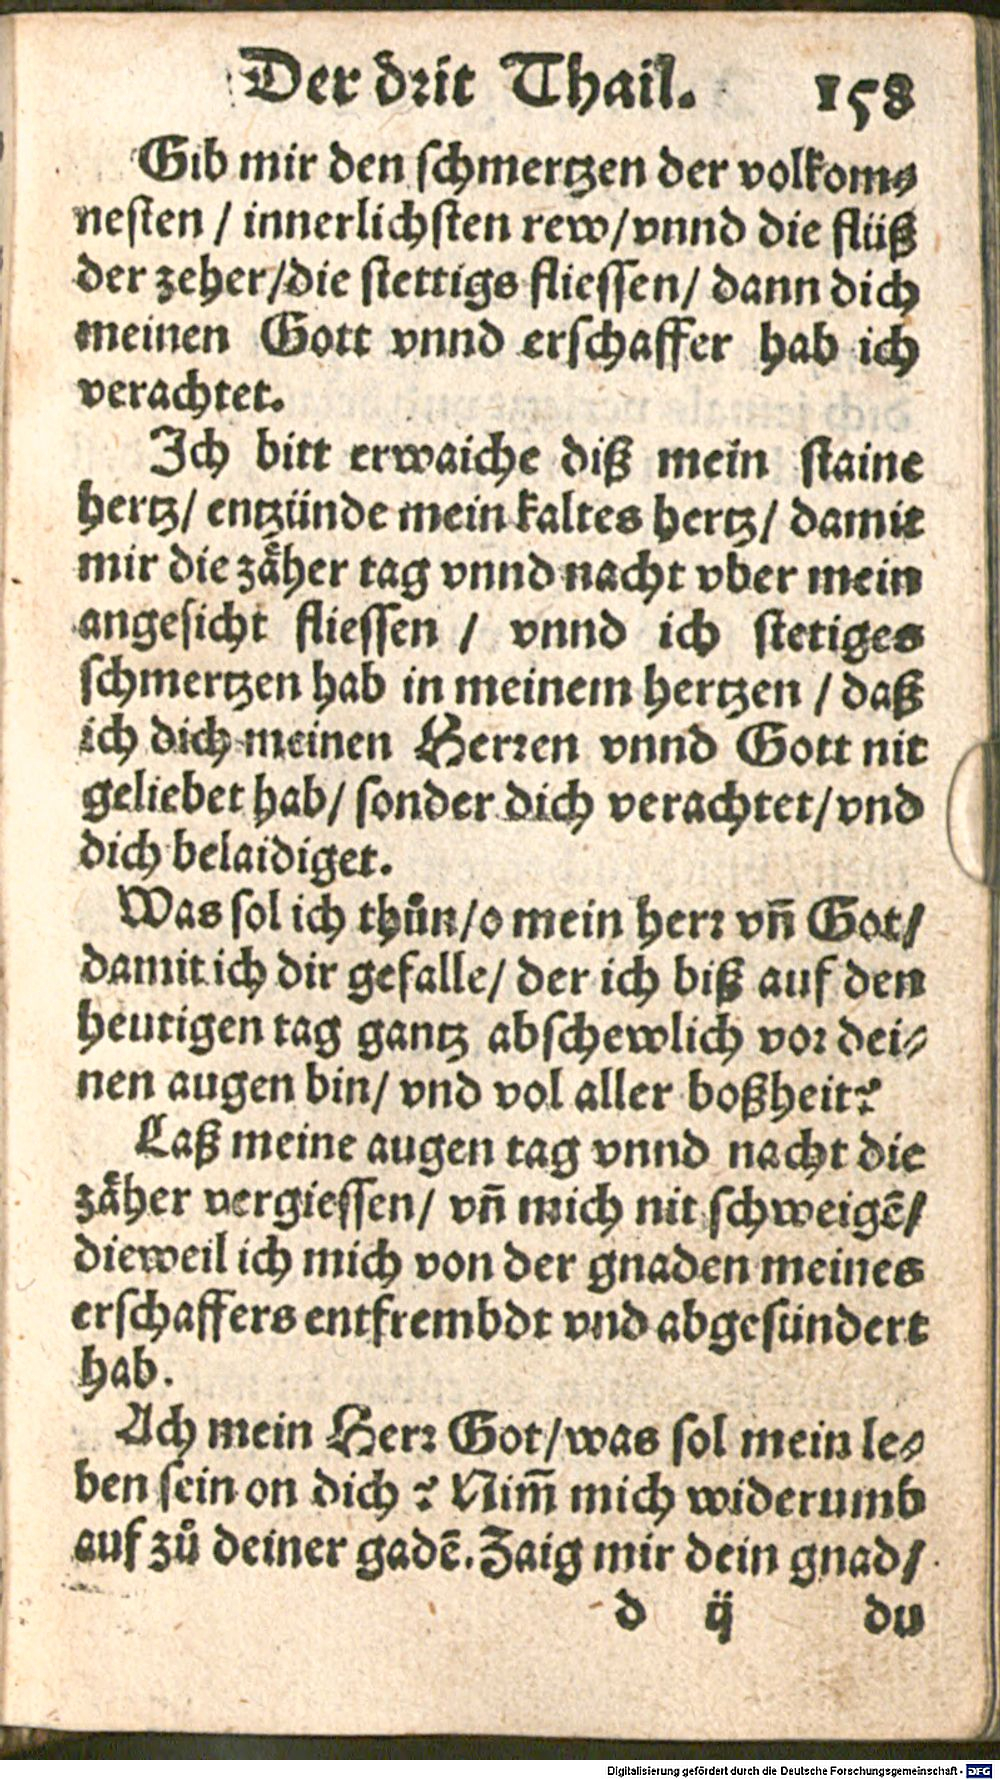 Der drit Thail. 158
Gib mir den schmertzen der volkom⸗
nesten / innerlichsten rew/vnnd die flüß
der zeher/die stettigs fliessen/ dann dich
meinen Gott vnnd erschaffer hab ich
verachtet.
Ich bitt erwaiche diß mein staine
hertz/ entzünde mein kaltes hertz/ damit
mir die zäher tag vnnd nacht vber mein
angesicht fliessen / vnnd ich stetiges
schmertzen hab in meinem hertzen / daß
ich dich meinen Herren vnnd Gott nit
geliebet hab/ sonder dich verachtet/vnd
dich belaidiget.
Was sol ich thůn/o mein herr vñ Got/
damit ich dir gefalle/ der ich biß auf den
heutigen tag gantz abschewlich vor dei⸗
nen augen bin/ vnd vol aller boßheit?
Laß meine augen tag vnnd nacht die
zäher vergiessen/ vñ mich nit schweigē/
dieweil ich mich von der gnaden meines
erschaffers entfrembdt vnd abgesündert
hab.
Ach mein Herr Got/was sol mein le⸗
ben sein on dich? Nim̄ mich widerumb
auf zů deiner gadē. Zaig mir dein gnad/
d ij du
Digitalisierung gefördert durch die Deutsche Forschungsgemeinschaft - DFG